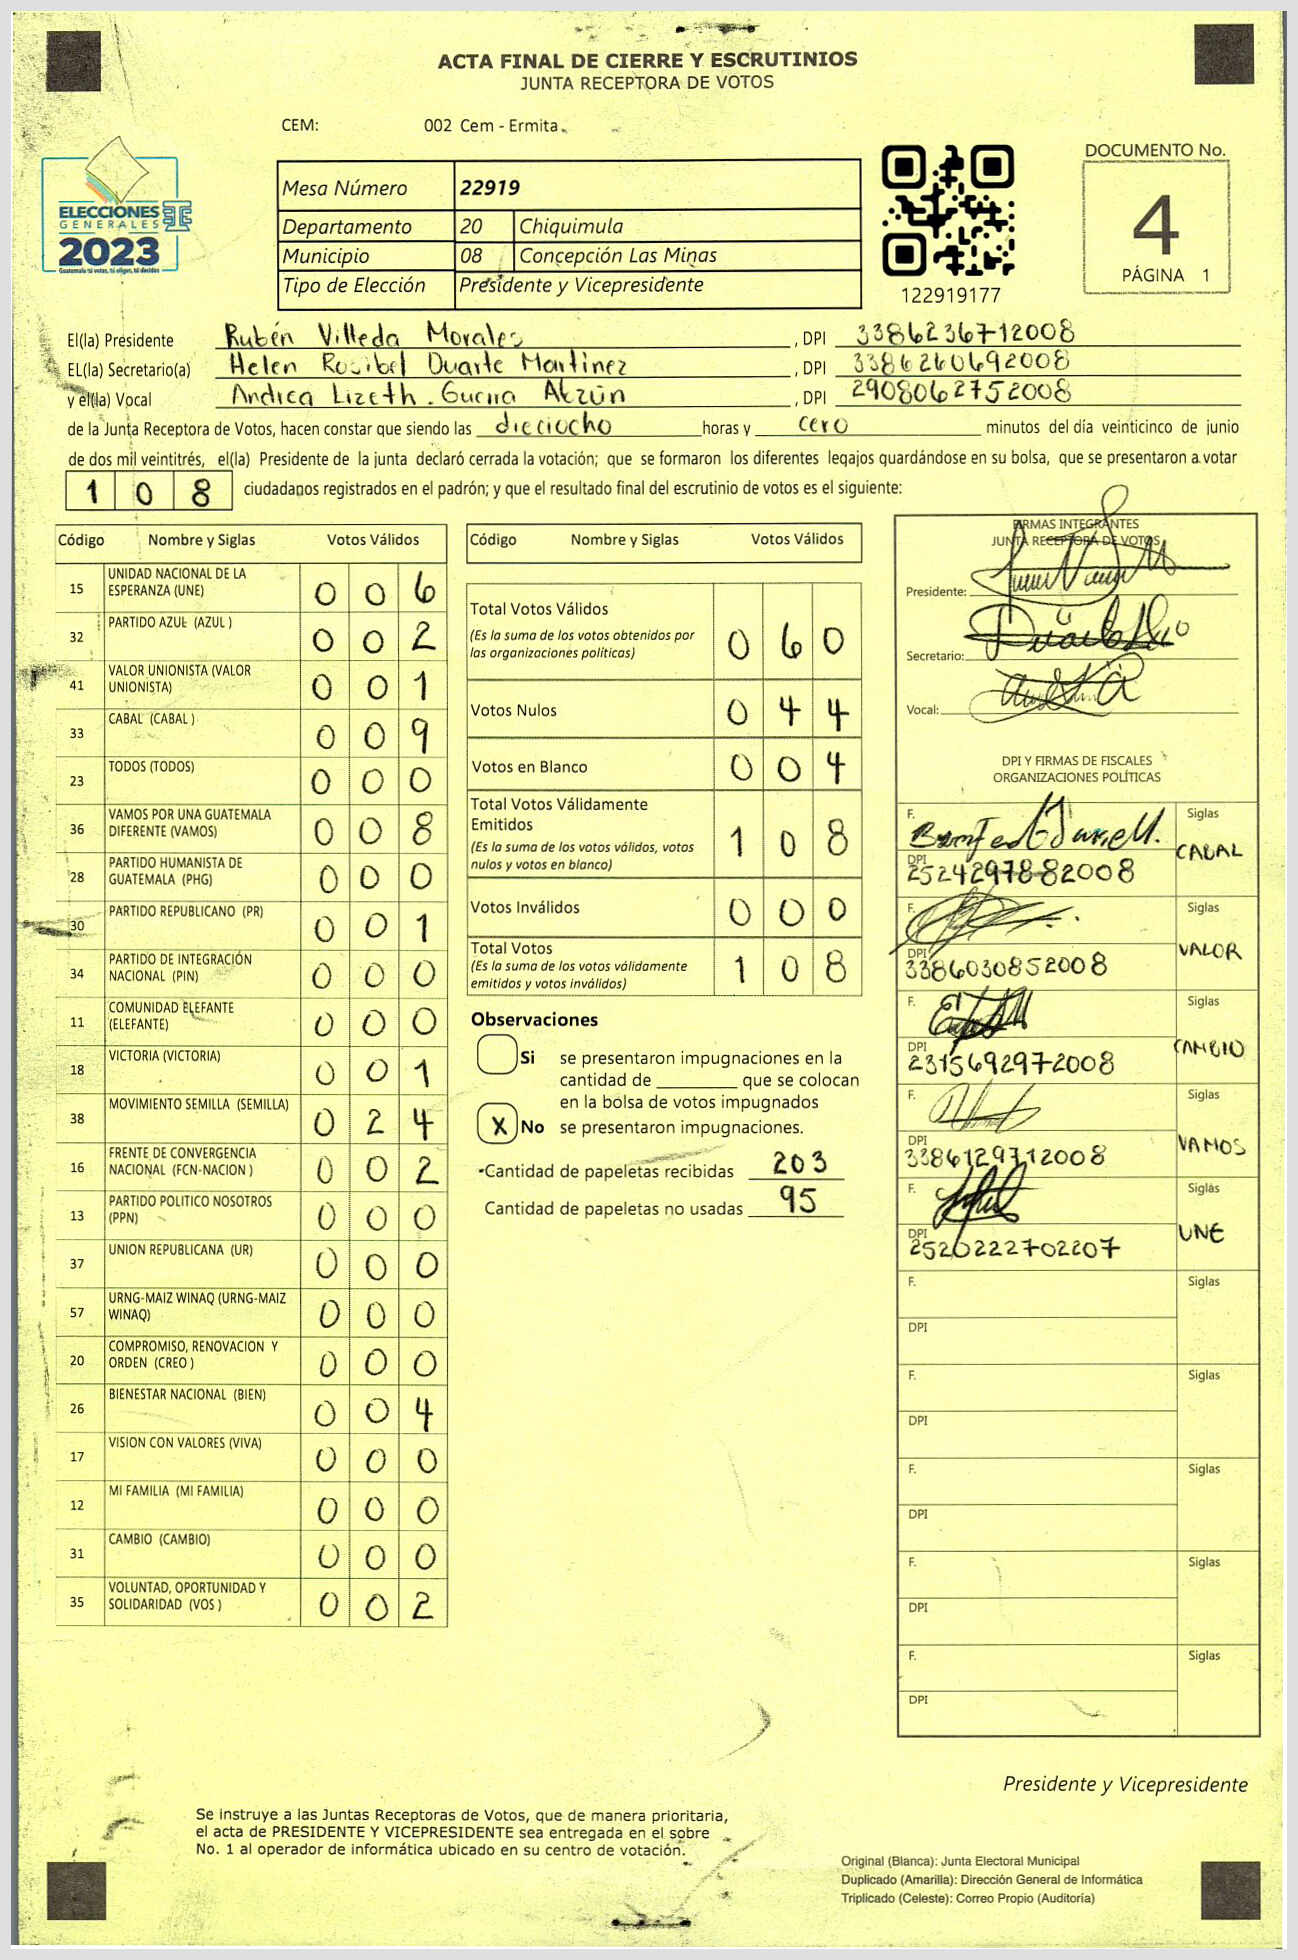 ACTA FINAL DE CIERRE Y ESCRUTINIOS
JUNTA RECEPTORA DE VOTOS
CEM: 002 Cem - Ermita
DOCUMENTO No.
4
PÁGINA 1
ELECCIONES
GENERALES
2023
Guatemala tú votas, tú eliges, tú decides
Mesa Número 22919
Departamento 20 Chiquimula
Municipio 08 Concepción Las Minas
Tipo de Elección Presidente y Vicepresidente
122919177
El(la) Presidente Rubén Villeda Morales, DPI 3386236712008
EL(la) Secretario(a) Helen Rosibel Duarte Martinez, DPI 3386260692008
y el(la) Vocal Andrea Lizeth. Guerra Atzún, DPI 2908062752008
de la Junta Receptora de Votos, hacen constar que siendo las dieciocho horas y cero minutos del día veinticinco de junio
de dos mil veintitrés, el(la) Presidente de la junta declaró cerrada la votación; que se formaron los diferentes legajos guardándose en su bolsa, que se presentaron a votar
108 ciudadanos registrados en el padrón; y que el resultado final del escrutinio de votos es el siguiente:
Código Nombre y Siglas Votos Válidos
15 UNIDAD NACIONAL DE LA ESPERANZA (UNE) 0 0 6
32 PARTIDO AZUL (AZUL ) 0 0 2
41 VALOR UNIONISTA (VALOR UNIONISTA) 0 0 1
33 CABAL (CABAL ) 0 0 9
23 TODOS (TODOS) 0 0 0
36 VAMOS POR UNA GUATEMALA DIFERENTE (VAMOS) 0 0 8
28 PARTIDO HUMANISTA DE GUATEMALA (PHG) 0 0 0
30 PARTIDO REPUBLICANO (PR) 0 0 1
34 PARTIDO DE INTEGRACIÓN NACIONAL (PIN) 0 0 0
11 COMUNIDAD ELEFANTE (ELEFANTE) 0 0 0
18 VICTORIA (VICTORIA) 0 0 1
38 MOVIMIENTO SEMILLA (SEMILLA) 0 2 4
16 FRENTE DE CONVERGENCIA NACIONAL (FCN-NACION ) 0 0 2
13 PARTIDO POLITICO NOSOTROS (PPN) 0 0 0
37 UNION REPUBLICANA (UR) 0 0 0
57 URNG-MAIZ WINAQ (URNG-MAIZ WINAQ) 0 0 0
20 COMPROMISO, RENOVACION Y ORDEN (CREO ) 0 0 0
26 BIENESTAR NACIONAL (BIEN) 0 0 4
17 VISION CON VALORES (VIVA) 0 0 0
12 MI FAMILIA (MI FAMILIA) 0 0 0
31 CAMBIO (CAMBIO) 0 0 0
35 VOLUNTAD, OPORTUNIDAD Y SOLIDARIDAD (VOS ) 0 0 2
Código Nombre y Siglas Votos Válidos
Total Votos Válidos 0 6 0
(Es la suma de los votos obtenidos por
las organizaciones políticas)
Votos Nulos 0 4 4
Votos en Blanco 0 0 4
Total Votos Válidamente
Emitidos 1 0 8
(Es la suma de los votos válidos, votos
nulos y votos en blanco)
Votos Inválidos 0 0 0
Total Votos 1 0 8
(Es la suma de los votos válidamente
emitidos y votos inválidos)
Observaciones
Si se presentaron impugnaciones en la
cantidad de ________ que se colocan
en la bolsa de votos impugnados
X No se presentaron impugnaciones.
Cantidad de papeletas recibidas 203
Cantidad de papeletas no usadas 95
FIRMAS INTEGRANTES
JUNTA RECEPTORA DE VOTOS
Presidente:
Secretario:
Vocal:
DPI Y FIRMAS DE FISCALES
ORGANIZACIONES POLÍTICAS
F. Siglas
CABAL
DPI
2524297882008
F. Siglas
VALOR
DPI
3386030852008
F. Siglas
CAMBIO
DPI
2315692972008
F. Siglas
VAMOS
DPI
3386129712008
F. Siglas
UNE
DPI
2520222702207
F. Siglas
DPI
F. Siglas
DPI
F. Siglas
DPI
F. Siglas
DPI
F. Siglas
DPI
Presidente y Vicepresidente
Se instruye a las Juntas Receptoras de Votos, que de manera prioritaria,
el acta de PRESIDENTE Y VICEPRESIDENTE sea entregada en el sobre
No. 1 al operador de informática ubicado en su centro de votación.
Original (Blanca): Junta Electoral Municipal
Duplicado (Amarilla): Dirección General de Informática
Triplicado (Celeste): Correo Propio (Auditoría)